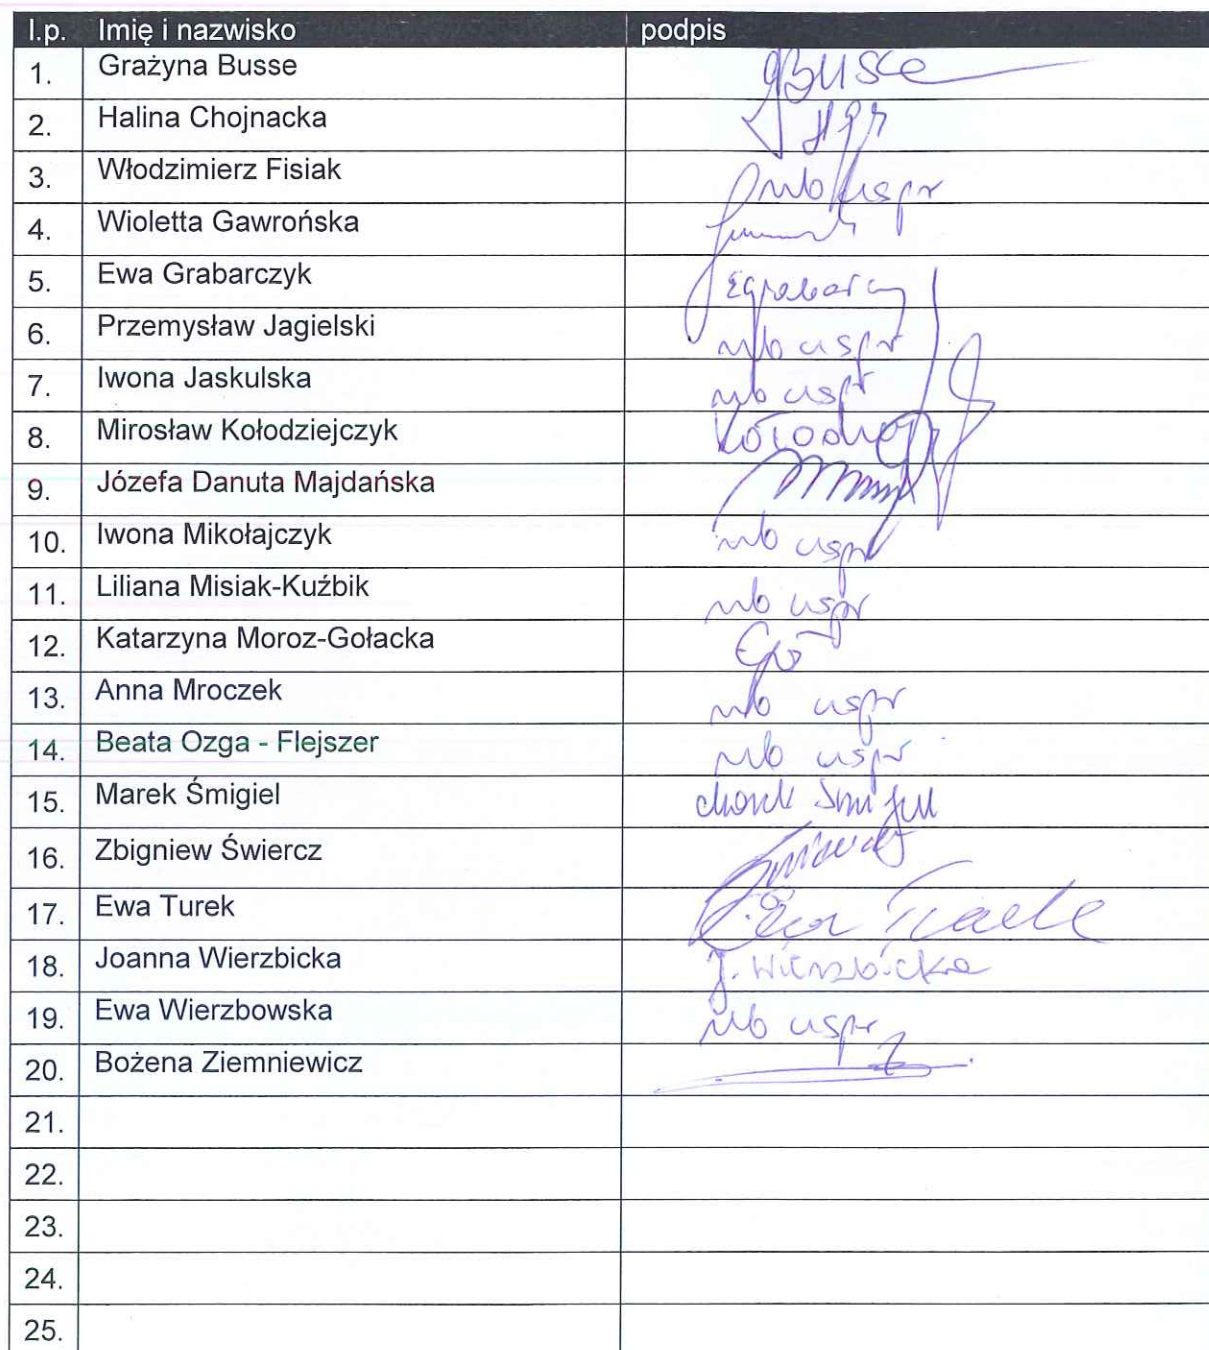 l.p. Imię i nazwisko podpis
1. Grażyna Busse GBusse
2. Halina Chojnacka
3. Włodzimierz Fisiak nb uspr
4. Wioletta Gawrońska
5. Ewa Grabarczyk
6. Przemysław Jagielski nb uspr
7. Iwona Jaskulska nb uspr
8. Mirosław Kołodziejczyk
9. Józefa Danuta Majdańska
10. Iwona Mikołajczyk nb uspr
11. Liliana Misiak-Kuźbik nb uspr
12. Katarzyna Moroz-Gołacka
13. Anna Mroczek nb uspr
14. Beata Ozga - Flejszer nb uspr
15. Marek Śmigiel Marek Śmigiel
16. Zbigniew Świercz
17. Ewa Turek Ewa Turek
18. Joanna Wierzbicka J. Wierzbicka
19. Ewa Wierzbowska nb uspr
20. Bożena Ziemniewicz
21.
22.
23.
24.
25.